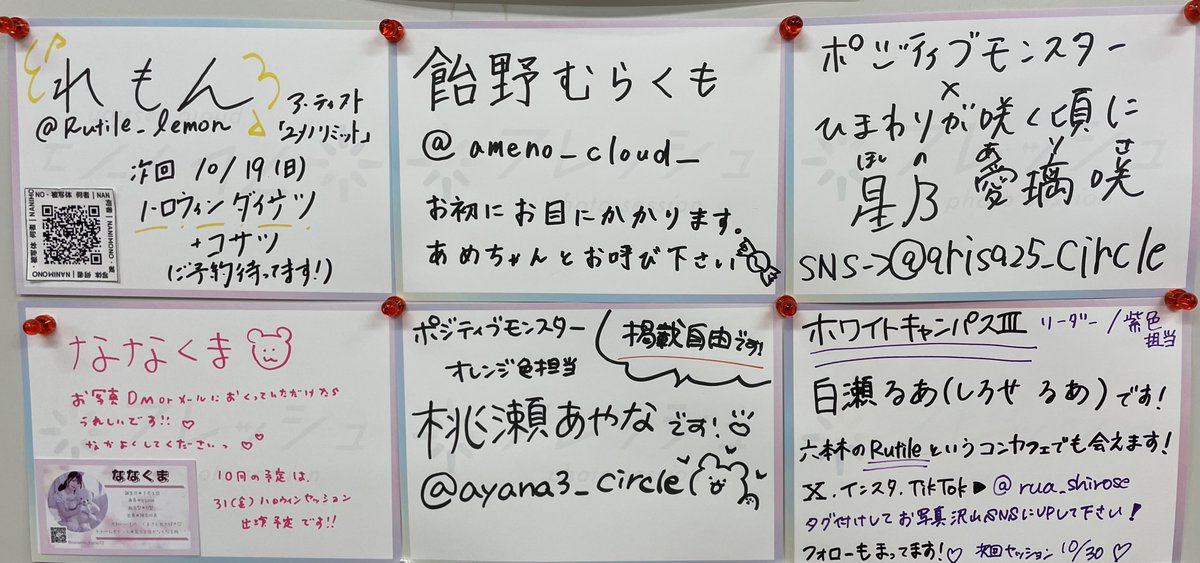 れもん
@Rutile_lemon
アーティスト
「2ノリミット」
次回 10/19(日)
ハロウィンダイサツ
+コサツ
(ご予約待ってます!)
NO・被写体 何者 | NAN
飴野むらくも
@ameno_cloud_
お初にお目にかかります。
あめちゃんとお呼び下さい
ポジティブモンスター
×
ひまわりが咲く頃に
ほしの ありさ
星乃 愛璃咲
SNS->@arisa25_circle
ななくま
お写真DMorメールにおくっていただけたら
うれしいです!! ♡
なかよくしてくださいっ ♡♡
ななくま
10月の予定は
31(金)ハロウィンセッション
出演予定です!!
ポジティブモンスター
オレンジ色担当
掲載自由です!
桃瀬あやなです!
@ayana3_circle
ホワイトキャンパスⅢ リーダー/紫色担当
白瀬るあ(しろせ るあ)です!
六本木のRutileというコンカフェでも会えます!
X.インスタ.TikTok▶@rua_shirose
タグ付けしてお写真沢山SNSにUPして下さい!
フォローもまってます!♡ 次回セッション10/30♡